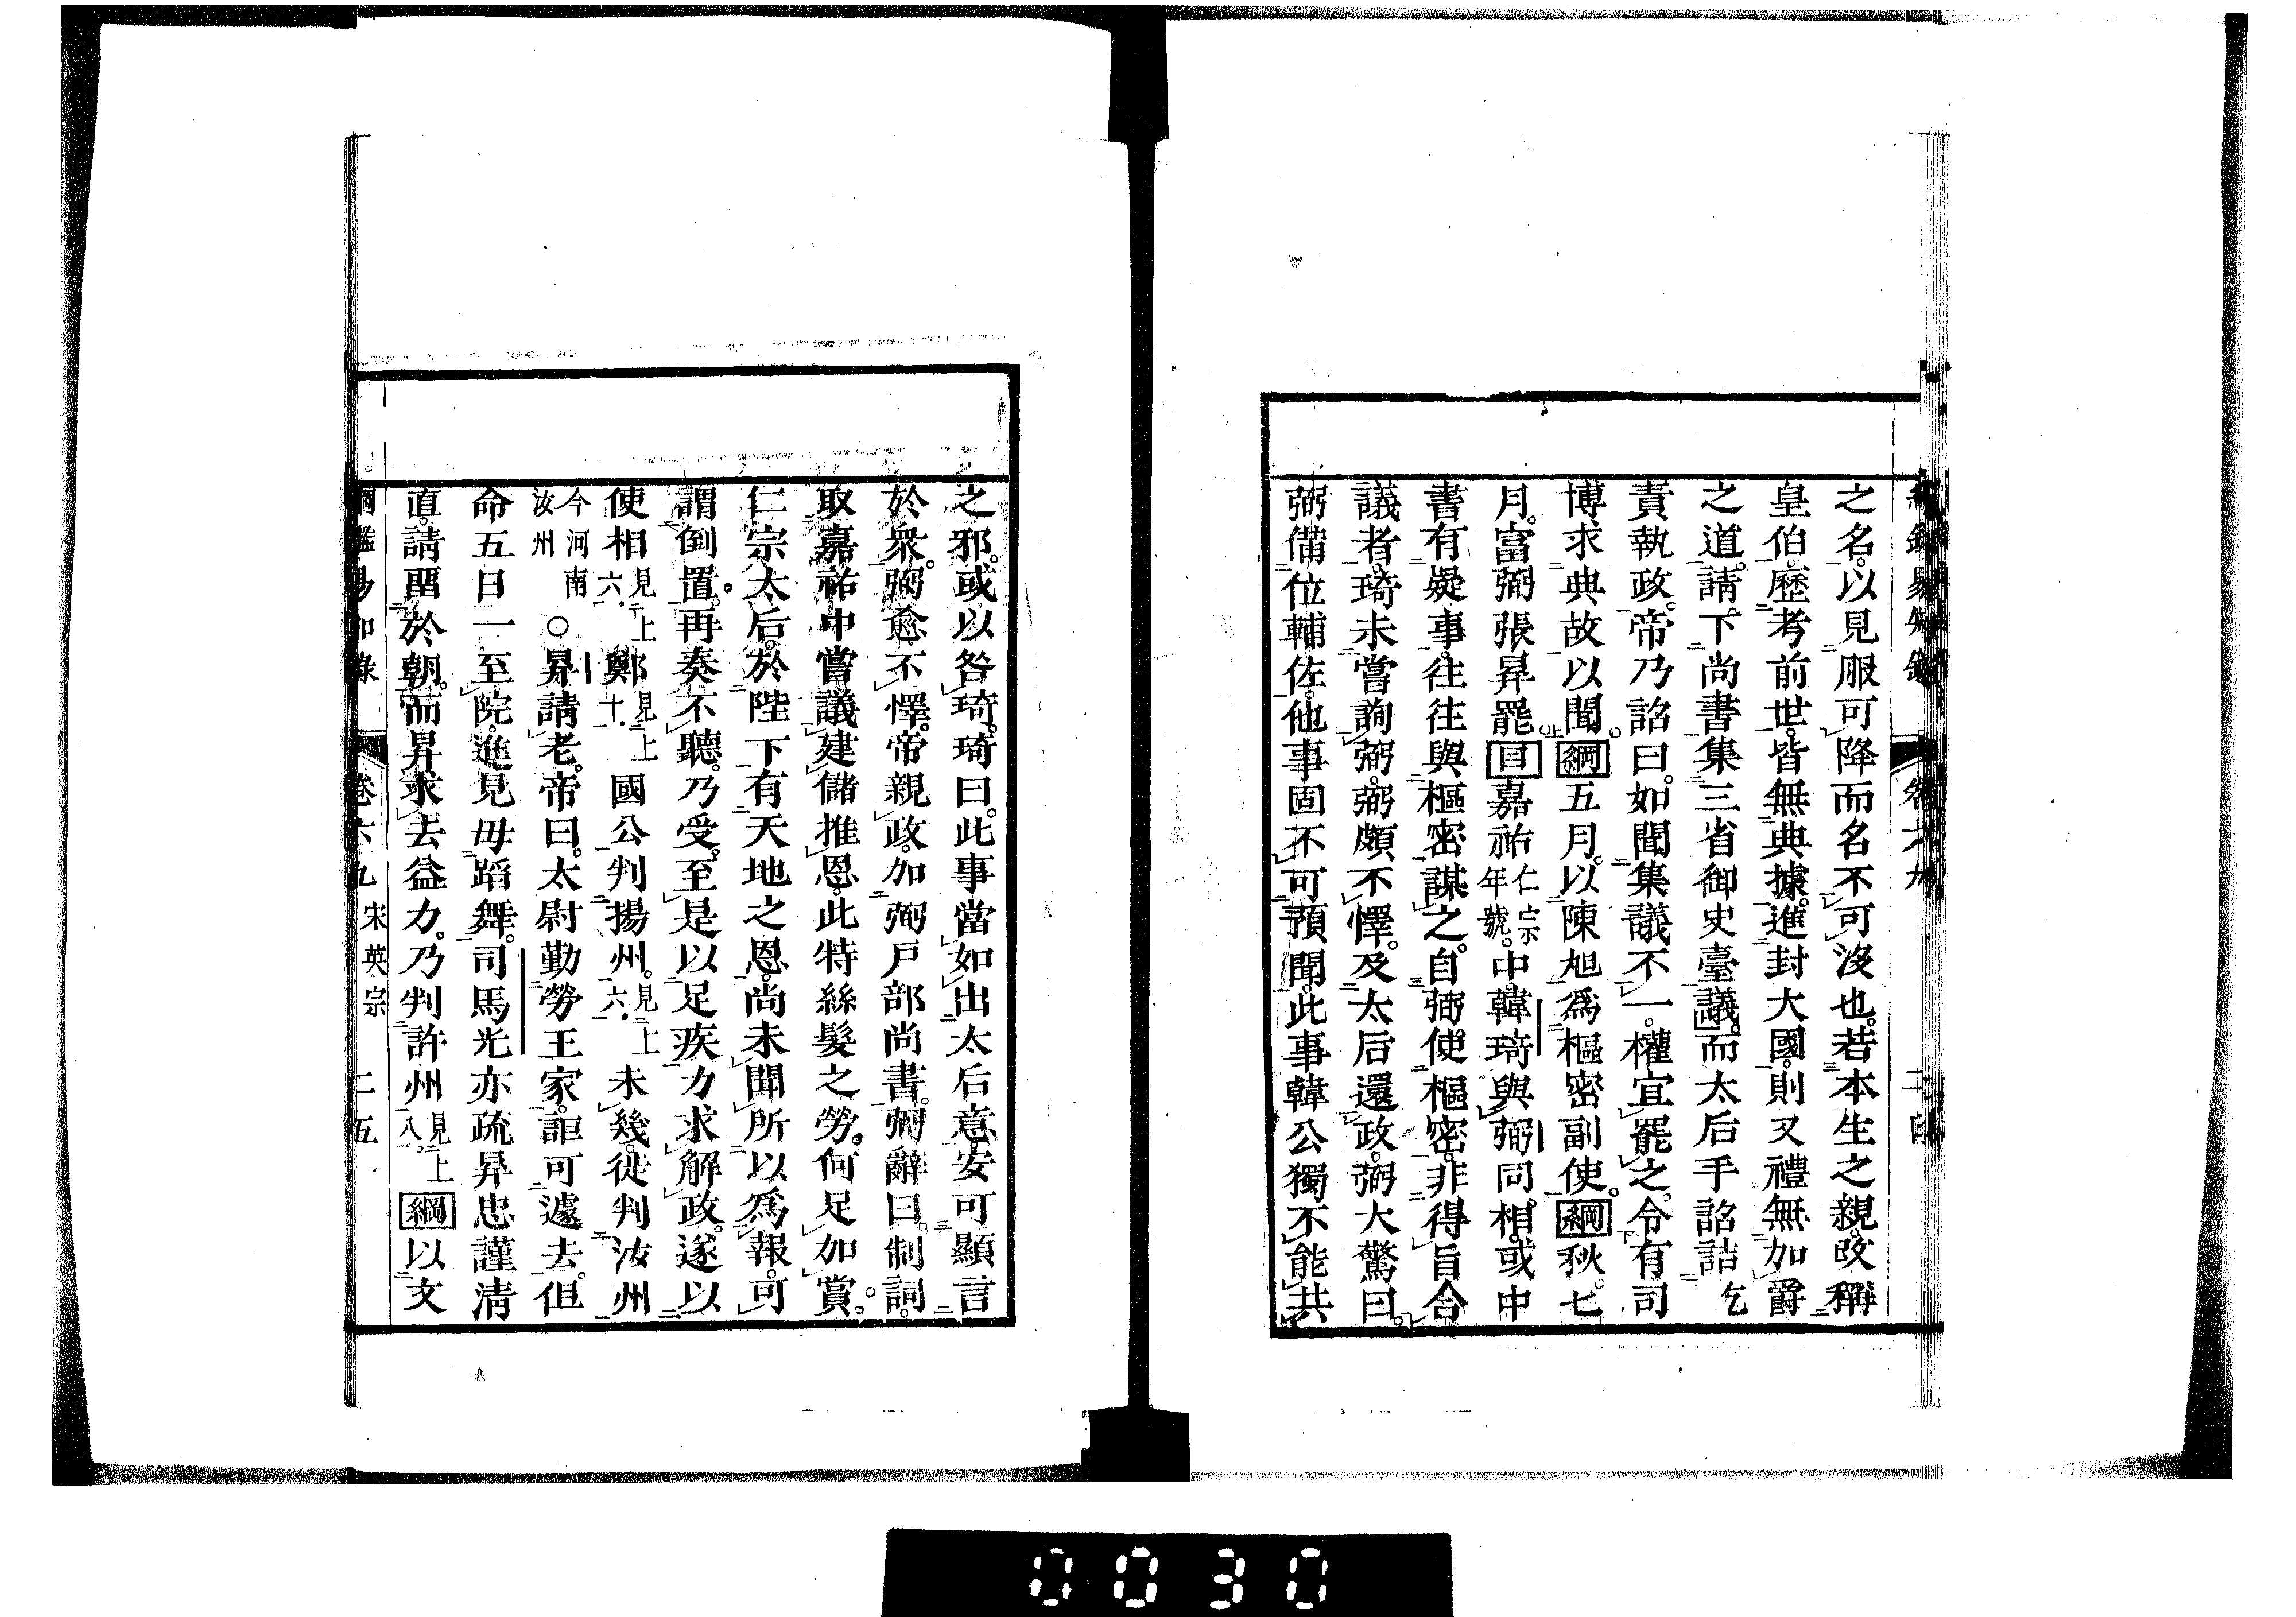 之名。以見服可降而名不可沒也。若本生之親。改稱
皇伯。歷考前世。皆無典據。進封大國。則又禮無加爵
之道。請下尚書集三省御史臺議。而太后手詔詰
責執政。帝乃詔曰。如聞集議不一。權宜罷之。令有司
博求典故以聞。綱五月。以陳旭爲樞密副使。綱秋。七
月。富弼張昇罷。目嘉祐仁宗年號。中韓琦與弼同相。或中
書有疑事。往往與樞密謀之。自弼使樞密。非得旨合
議者。琦未嘗詢弼。弼頗不懌。及太后還政。弼大驚曰。
弼備位輔佐。他事固不可預聞。此事韓公獨不能共
之邪。或以咎琦。琦曰。此事當如出太后意。安可顯言
於衆。弼愈不懌。帝親政。加弼戶部尚書。弼辭曰。制詞。
取嘉祐中嘗議建儲推恩。此特絲髮之勞。何足加賞。
仁宗太后。於陛下有天地之恩。尚未聞所以爲報。可
謂倒置。再奏不聽。乃受。至是以足疾力求解政。遂以
使相見上六。鄭見上十。國公判揚州。見上六。未幾。徙判汝州
今河南汝州○昇請老。帝曰。太尉勤勞王家。詎可遽去。但
命五日一至院。進見毋蹈舞。司馬光亦疏昇忠謹清
直。請畱於朝。而昇求去益力。乃判許州見上八。綱以文
綱鑑易知錄 卷六九 宋英宗 二五